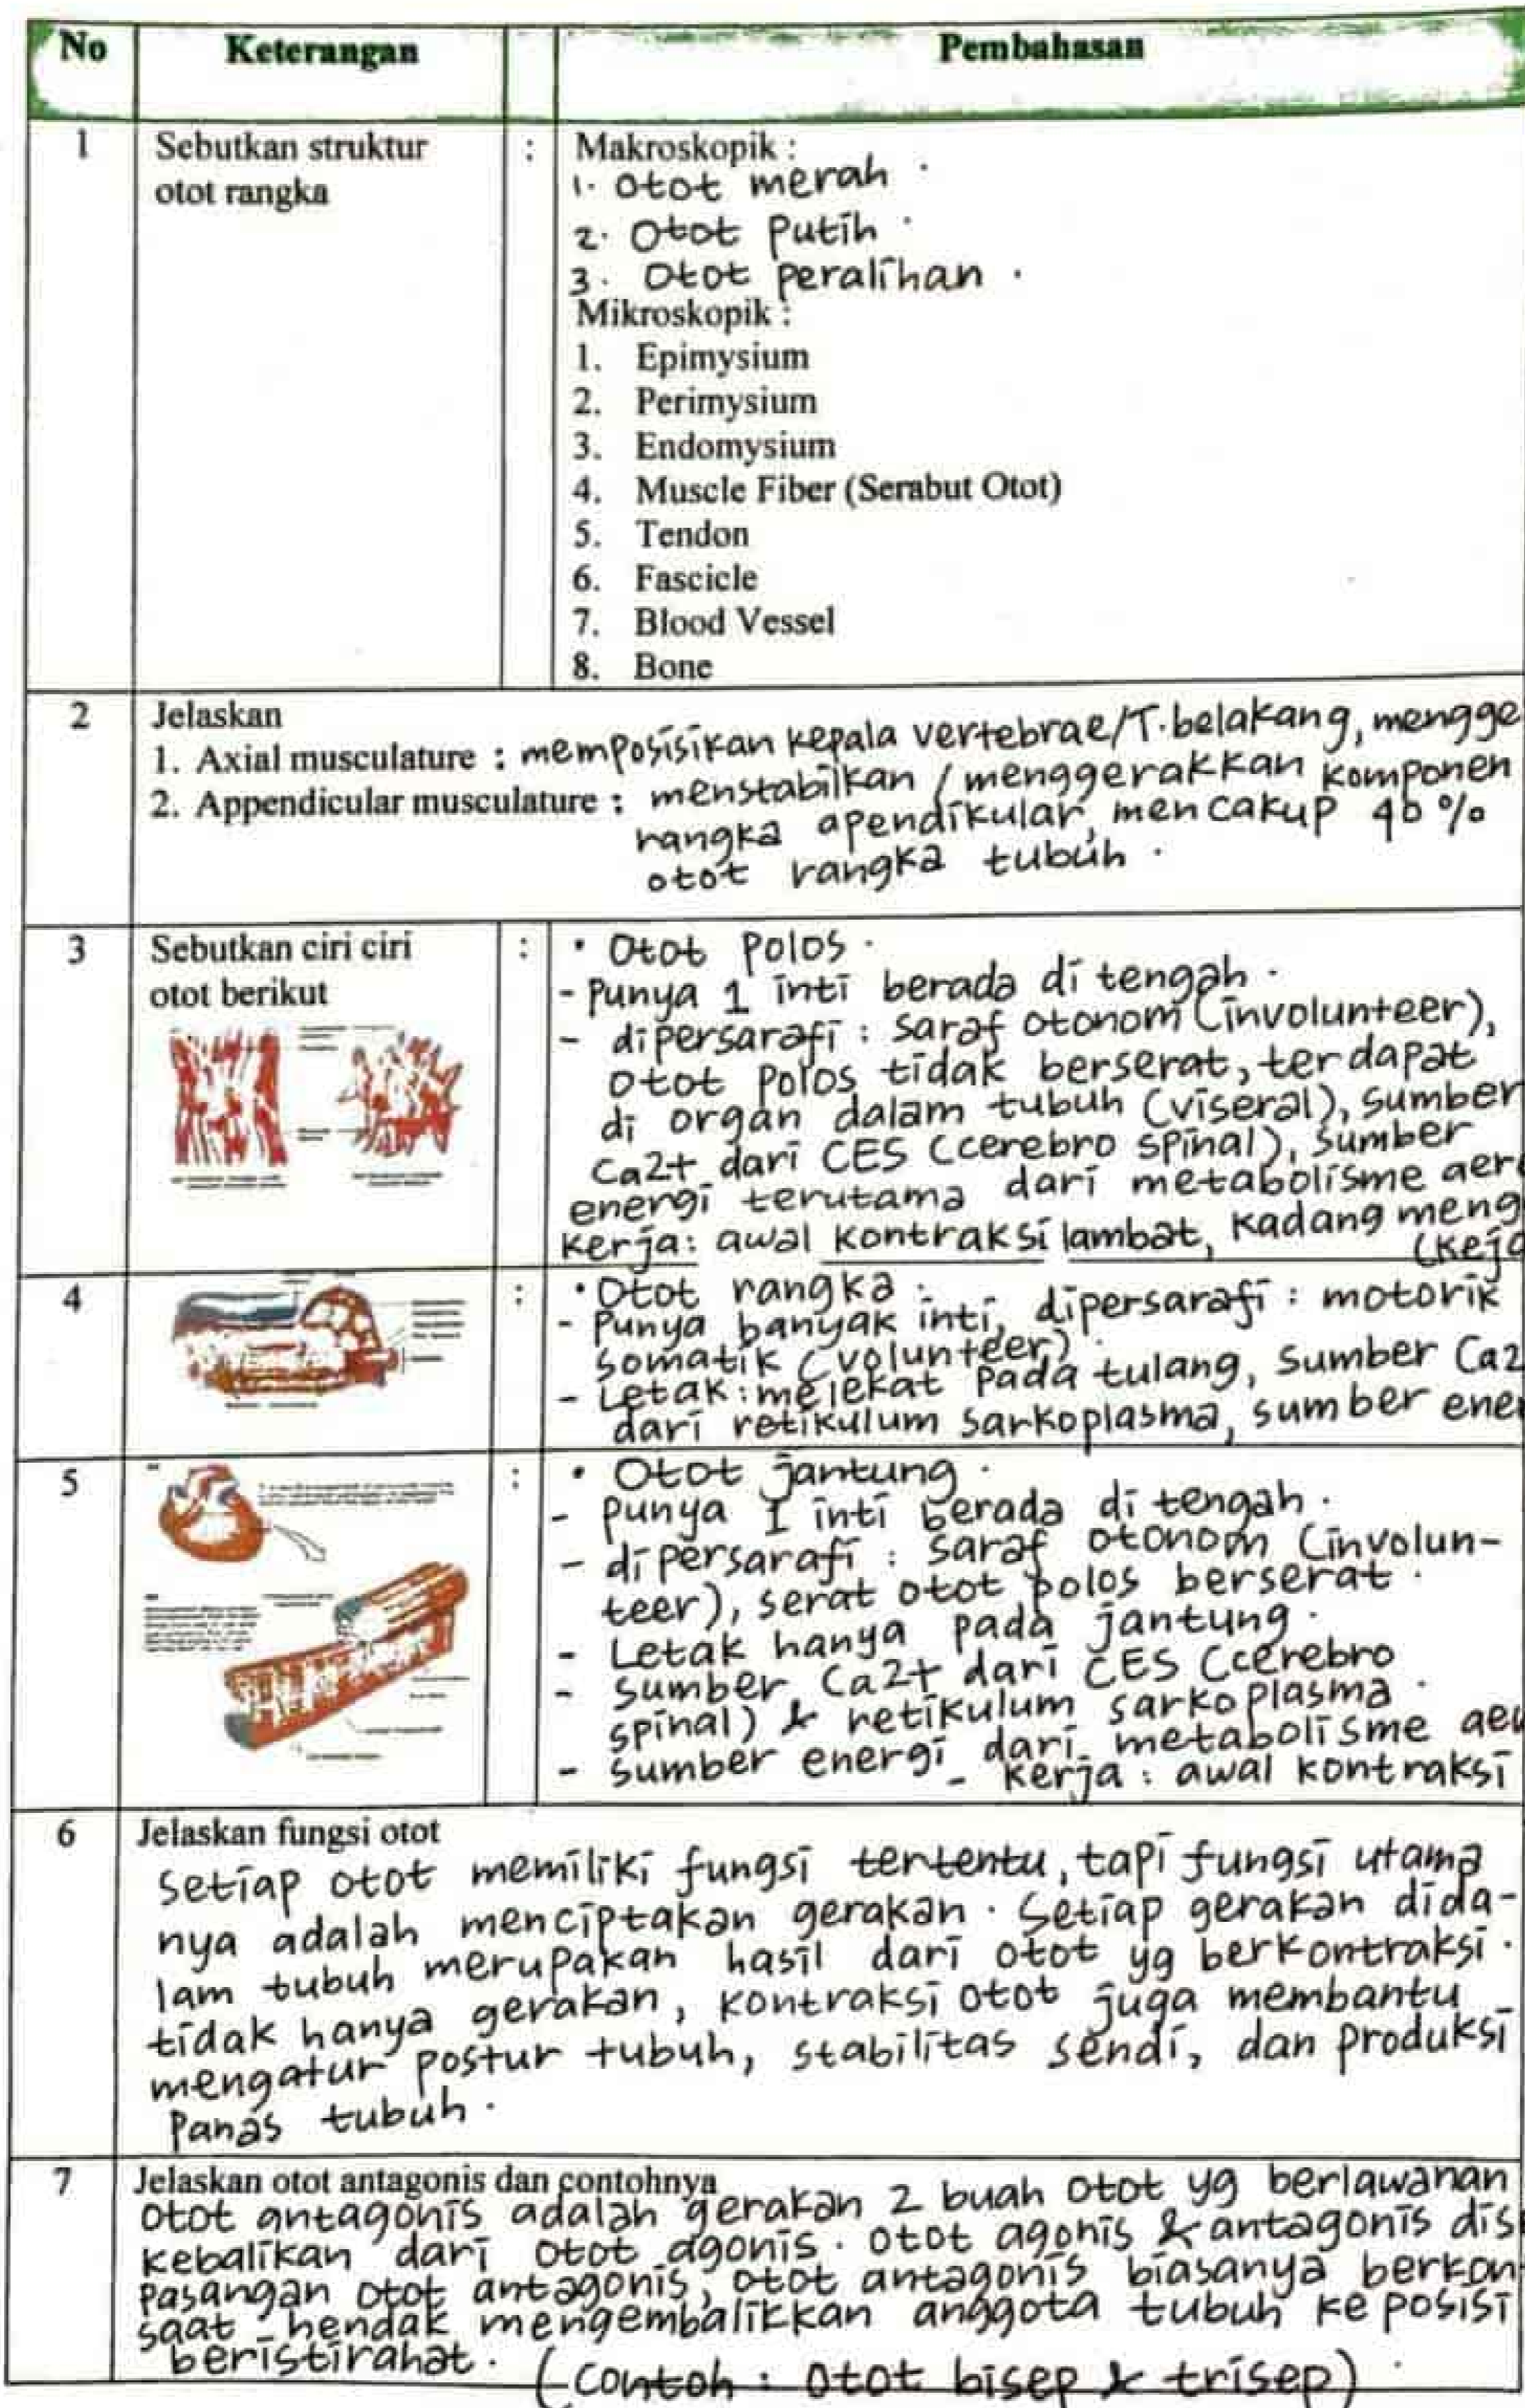 No Keterangan Pembahasan
1 Sebutkan struktur : Makroskopik :
otot rangka 1. Otot merah .
2. Otot Putih .
3. Otot peralihan .
Mikroskopik :
1. Epimysium
2. Perimysium
3. Endomysium
4. Muscle Fiber (Serabut Otot)
5. Tendon
6. Fascicle
7. Blood Vessel
8. Bone
2 Jelaskan
1. Axial musculature : memposisikan kepala vertebrae/T.belakang, mengge
2. Appendicular musculature : menstabilkan / menggerakkan komponen
rangka apendikular, mencakup 40 %
otot rangka tubuh .
3 Sebutkan ciri ciri : • Otot Polos .
otot berikut - Punya 1 inti berada di tengah .
- dipersarafi : saraf otonom (involunteer),
otot polos tidak berserat, terdapat
di organ dalam tubuh (viseral), sumber
Ca2+ dari CES (cerebro spinal), sumber
energi terutama dari metabolisme aer
kerja: awal kontraksi lambat, kadang meng
(keja
4 : • Otot rangka .
- Punya banyak inti, dipersarafi : motorik
somatik (volunteer) .
- Letak : melekat pada tulang, sumber Ca2
dari retikulum sarkoplasma, sumber ene
5 : • Otot jantung .
- punya 1 inti berada di tengah .
- dipersarafi : saraf otonom (involun-
teer), serat otot polos berserat .
- Letak hanya pada jantung .
- sumber Ca2+ dari CES (cerebro
spinal) & retikulum sarkoplasma .
- sumber energi dari metabolisme ae
- kerja : awal kontraksi
6 Jelaskan fungsi otot
Setiap otot memiliki fungsi tertentu, tapi fungsi utama
nya adalah menciptakan gerakan . Setiap gerakan dida-
lam tubuh merupakan hasil dari otot yg berkontraksi .
tidak hanya gerakan, kontraksi otot juga membantu
mengatur postur tubuh, stabilitas sendi, dan produksi
Panas tubuh .
7 Jelaskan otot antagonis dan contohnya
Otot antagonis adalah gerakan 2 buah otot yg berlawanan
kebalikan dari otot agonis . otot agonis & antagonis dis
pasangan otot antagonis, otot antagonis biasanya berkon
saat hendak mengembalikkan anggota tubuh ke posisi
beristirahat .
(Contoh : otot bisep & trisep) .